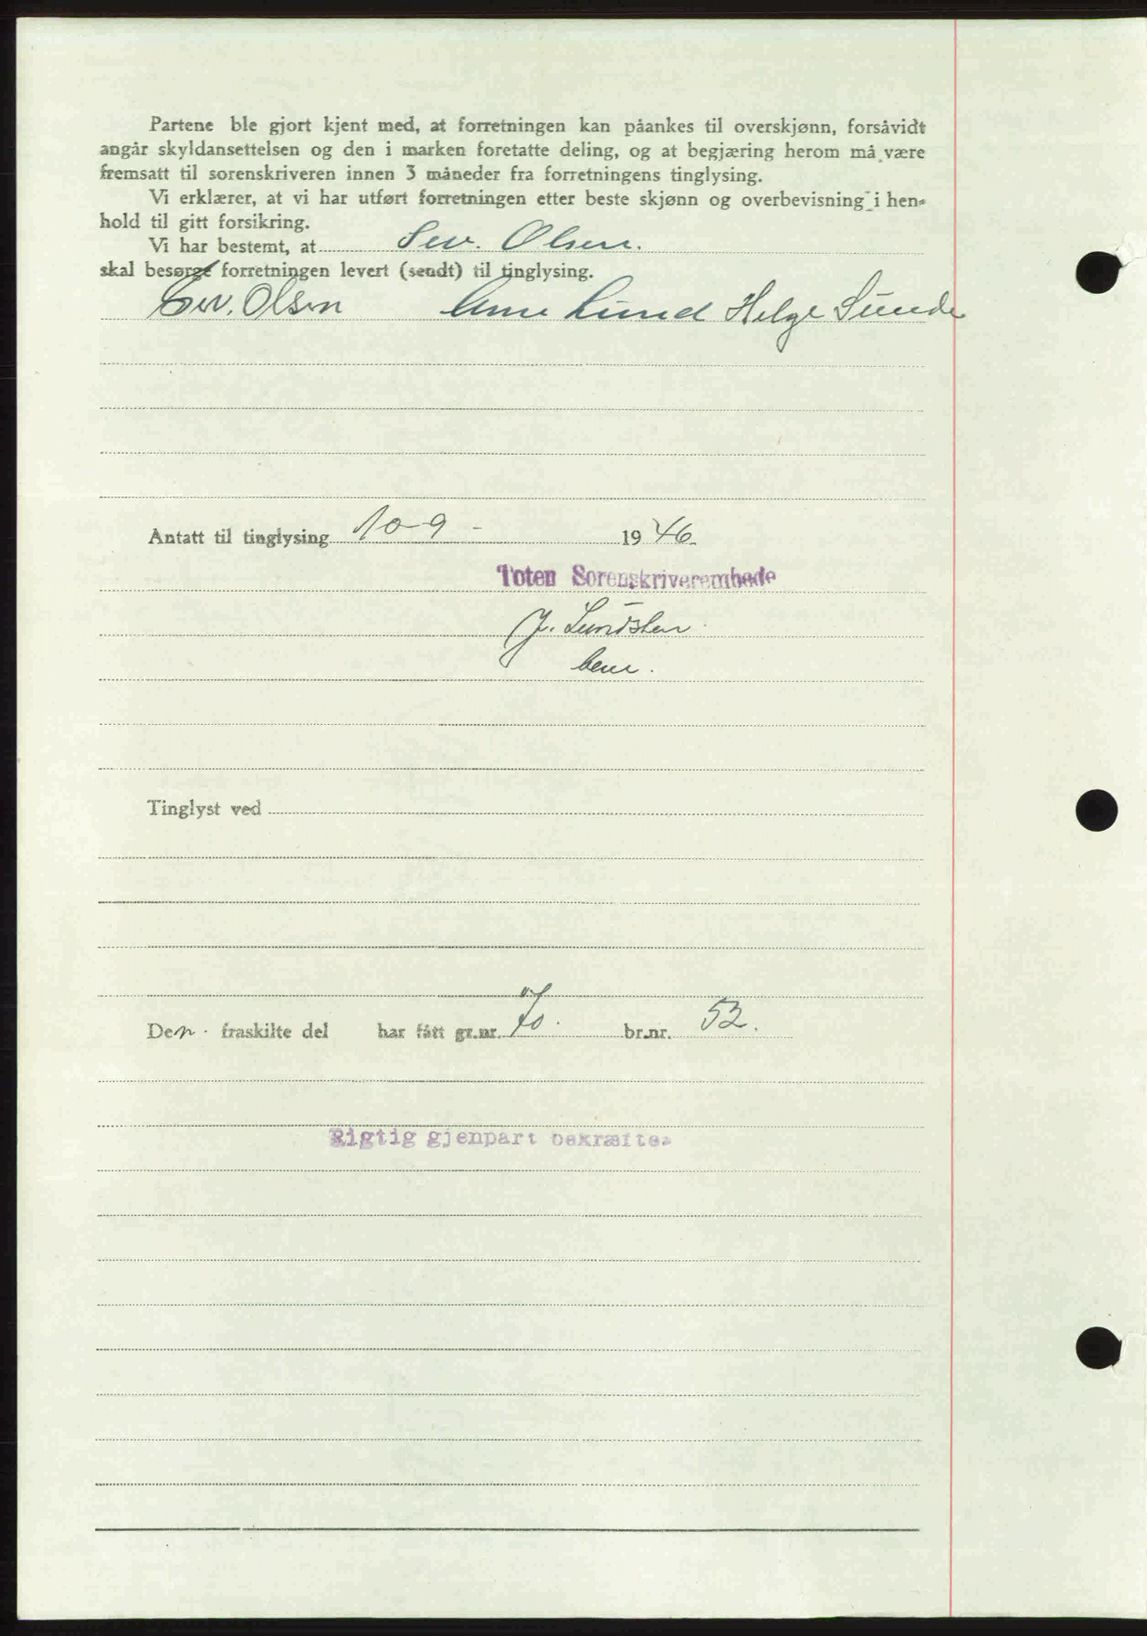 Partene ble gjort kjent med, at forretningen kan påankes til overskjønn, forsåvidt
angår skyldansettelsen og den i marken foretatte deling, og at begjæring herom må være
fremsatt til sorenskriveren innen 3 måneder fra forretningens tinglysing.
Vi erklærer, at vi har utført forretningen etter beste skjønn og overbevisning i hen-
hold til gitt forsikring.
Vi har bestemt, at Sev. Olsen.
skal besørge forretningen levert (sendt) til tinglysing.
Sev. Olsen Arne Lund Helge Sunde
Antatt til tinglysing 10-9 - 1946
Toten Sorenskriverembede
J. Lundsten
bem.
Tinglyst ved
Den fraskilte del har fått gr.nr. 70. br.nr. 53.
Rigtig gjenpart bekræftes